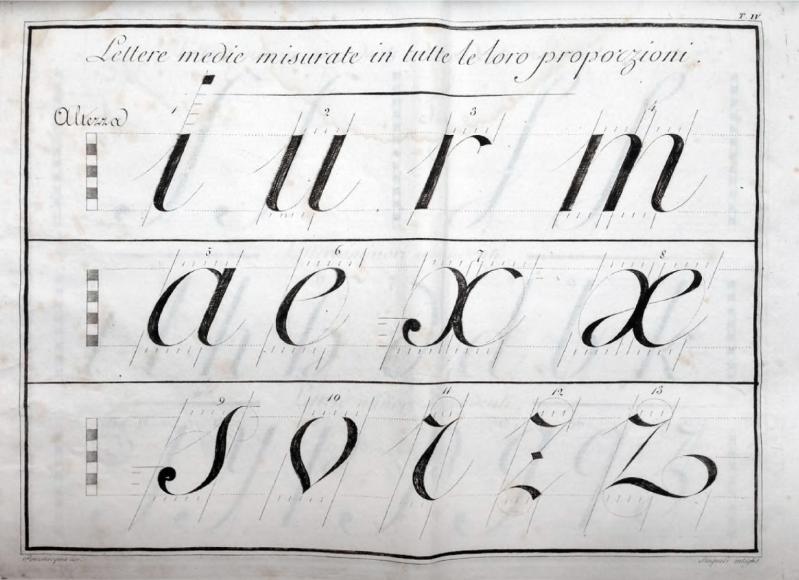 T. IV
Lettere medie misurate in tutte le loro proporzioni.
Altezza
1 2 3 4
i u r m
5 6 7 8
a e x æ
9 10 11 12 13
s v z